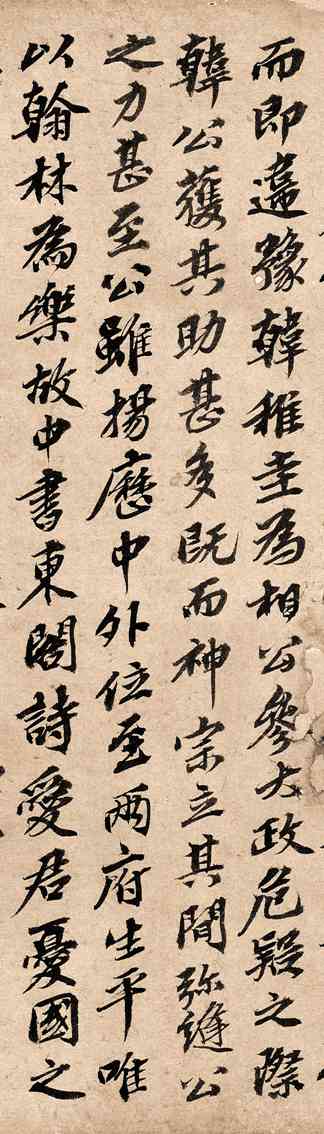 而即違豫韓稚圭為相公參大政危疑之際
韓公獲其助甚多既而神宗立其間弥縫公
之力甚至公雖揚歷中外位至兩府生平唯
以翰林為樂故中書東閣詩愛君憂國之